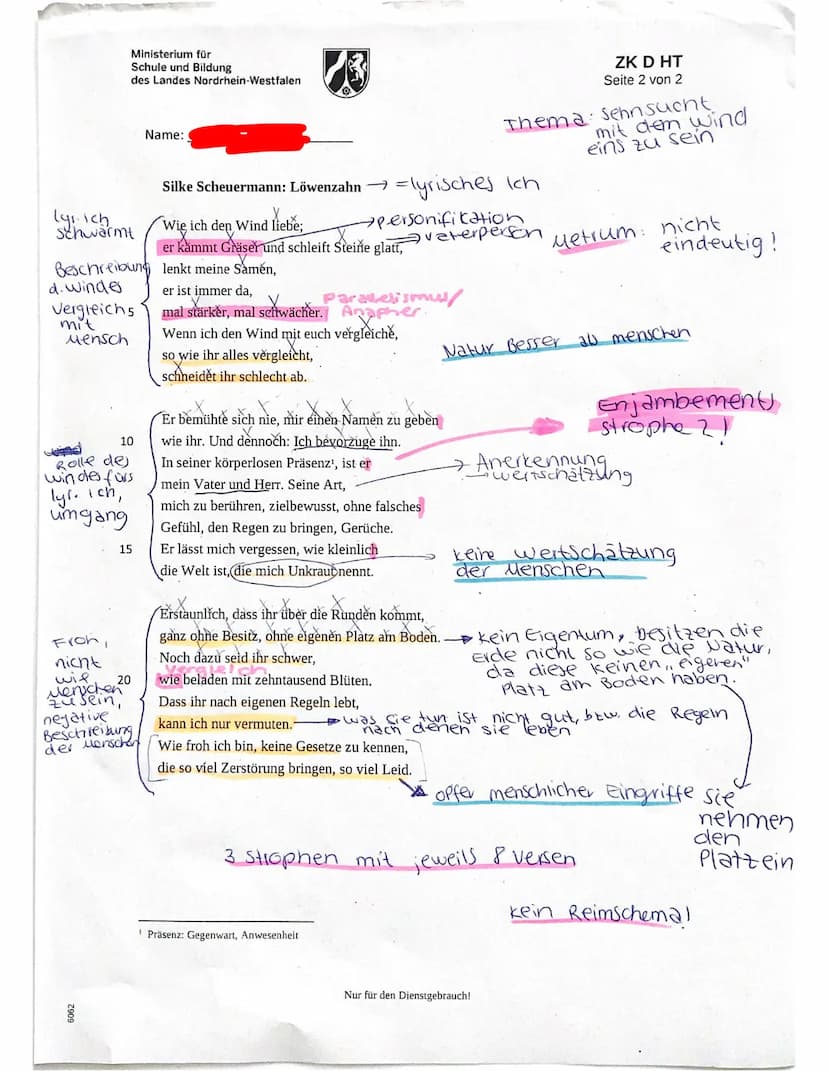 Ministerium für
Schule und Bildung
des Landes Nordrhein-Westfalen
ZK D HT
Seite 2 von 2
Name:
Thema: Sehnsucht
mit dem Wind
eins zu sein
Silke Scheuermann: Löwenzahn → = lyrisches Ich
lyr. ich
schwärmt
Beschreibung
d. windes
Vergleich s
mit
Mensch
Wie ich den Wind liebe;
er kämmt Gräser und schleift Steine glatt,
lenkt meine Samen,
er ist immer da,
mal stärker, mal schwächer.
Wenn ich den Wind mit euch vergleiche,
so wie ihr alles vergleicht,
schneidet ihr schlecht ab.
→ personifikation
→ vaterperson
Metrum: nicht
eindeutig!
Parallelismus/
Anapher
Natur Besser als menschen
Er bemühte sich nie, mir einen Namen zu geben
10 wie ihr. Und dennoch: Ich bevorzuge ihn.
In seiner körperlosen Präsenz¹, ist er
mein Vater und Herr. Seine Art,
mich zu berühren, zielbewusst, ohne falsches
Gefühl, den Regen zu bringen, Gerüche.
15 Er lässt mich vergessen, wie kleinlich
die Welt ist, die mich Unkraut nennt.
Rolle des
windes fürs
lyr. ich,
umgang
Enjambements
strophe 2!
→ Anerkennung
→ wertschätzung
keine wertschätzung
der Menschen
Erstaunlich, dass ihr über die Runden kommt,
ganz ohne Besitz, ohne eigenen Platz am Boden.
Noch dazu seid ihr schwer,
20 wie beladen mit zehntausend Blüten.
Dass ihr nach eigenen Regeln lebt,
kann ich nur vermuten.
Wie froh ich bin, keine Gesetze zu kennen,
die so viel Zerstörung bringen, so viel Leid.
Vergleich
Froh,
nicht
wie
Menschen
zu sein,
negative
Beschreibung
der Menschen
→ kein Eigentum, besitzen die
Erde nicht so wie die Natur,
da diese keinen „eigenen"
Platz am Boden haben.
→ was sie tun ist nicht gut, bzw. die Regeln
nach denen sie leben
opfer menschlicher Eingriffe
sie
nehmen
den
Platz ein
3 Strophen mit jeweils 8 Versen
kein Reimschema!
¹ Präsenz: Gegenwart, Anwesenheit
Nur für den Dienstgebrauch!
6062